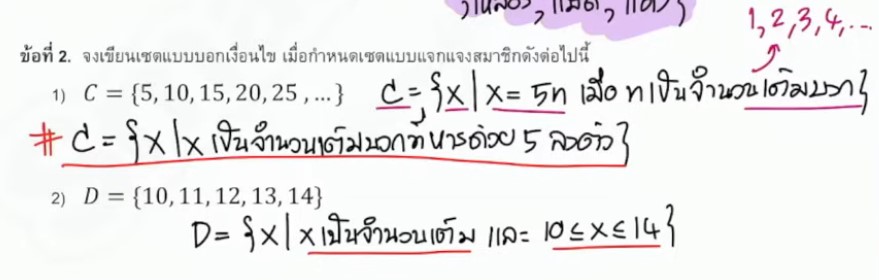 1, 2, 3, 4, ...
ข้อที่ 2. จงเขียนเซตแบบบอกเงื่อนไข เมื่อกำหนดเซตแบบแจกแจงสมาชิกดังต่อไปนี้
1) C = {5, 10, 15, 20, 25 , ...} C = {x | x = 5n เมื่อ n เป็นจำนวนเต็มบวก}
# C = {x | x เป็นจำนวนเต็มบวกที่หารด้วย 5 ลงตัว}
2) D = {10, 11, 12, 13, 14}
D = {x | x เป็นจำนวนเต็ม และ 10 ≤ x ≤ 14}